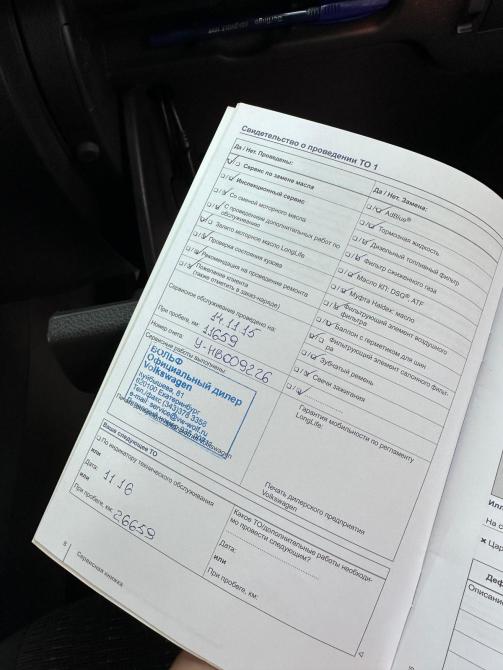 Свидетельство о проведении ТО 1
Да / Нет. Проведены:
Сервис по замене масла
Инспекционный сервис
Со сменой моторного масла
С проведением дополнительных работ по
обслуживанию
Залито моторное масло LongLife
Проверка состояния кузова
Рекомендация на проведение ремонта
Пожелание клиента
(также отметить в заказ-наряде)
Сервисное обслуживание проведено на:
14.11.15
При пробеге, км: 11659
Номер счета: У-НВ009226
Сервисные работы выполнены
ВОЛЬФ
Официальный дилер
Volkswagen
Куйбышева, 81
620100 Екатеринбург
Тел./факс (343)378 3358
e-mail: service@vs-wolf.ru
Да / Нет. Замена:
AdBlue®
Тормозная жидкость
Дизельный топливный фильтр
Фильтр сжиженного газа
Масло КП: DSG®, ATF
Муфта Haldex: масло
Фильтрующий элемент воздушного
фильтра
Баллон с герметиком для шин
Фильтрующий элемент салонного фильт-
ра
Зубчатый ремень
Свечи зажигания
Гарантия мобильности по регламенту
LongLife:
Печать дилерского предприятия
Volkswagen
Ваше следующее ТО
По индикатору технического обслуживания
или
Дата: 11.16
или
При пробеге, км: 26659
Какое ТО/дополнительные работы необходи-
мо провести следующим?
Дата:
или
При пробеге, км:
8
Сервисная книжка